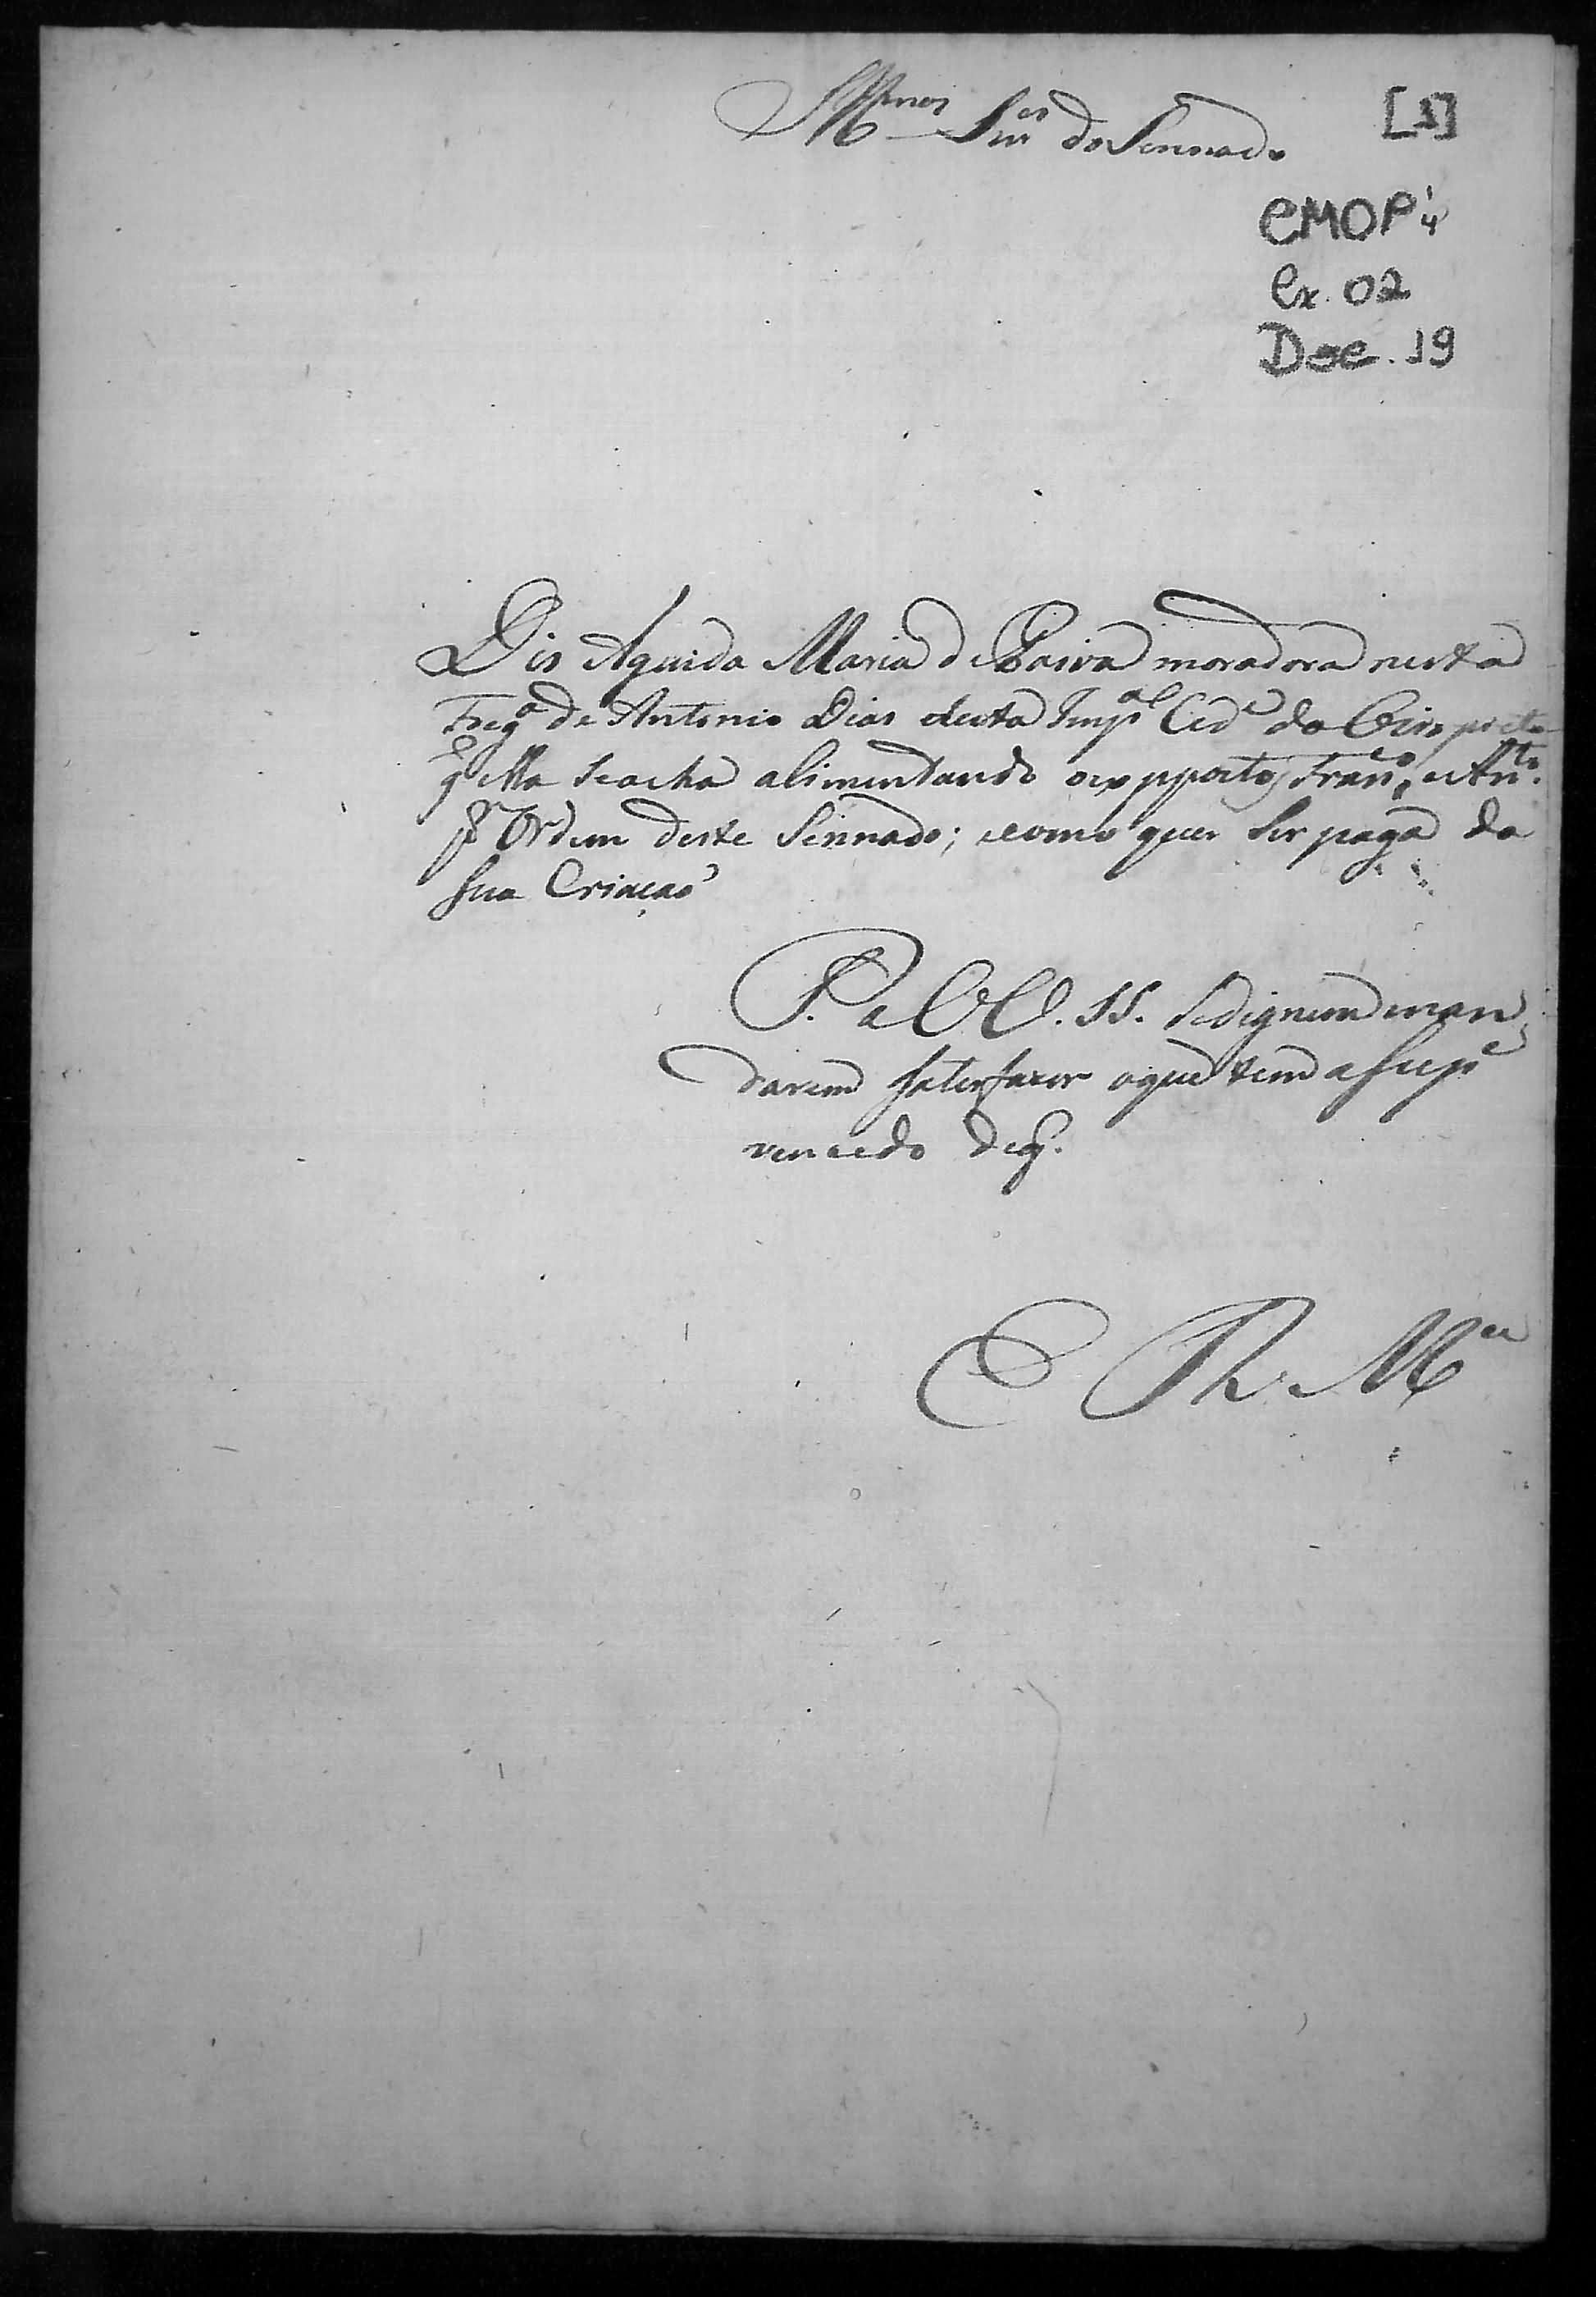 Illmos Snres do Sennado
[1]
CMOP 1/4
Cx. 02
Doc. 19
Dis Aguida Maria de Paiva moradora nesta
Fregª de Antonio Dias desta Impal Cide do Oiro preto
q ella seacha alimentando os exppostos Franco, e Anto.
pr Ordem deste Sennado; ecomo quer ser paga da
sua Criaçaõ
P. a VV. SS. sedignem man
darem saterfazer oque tem a Supe
vencedo deq.
E R Mce